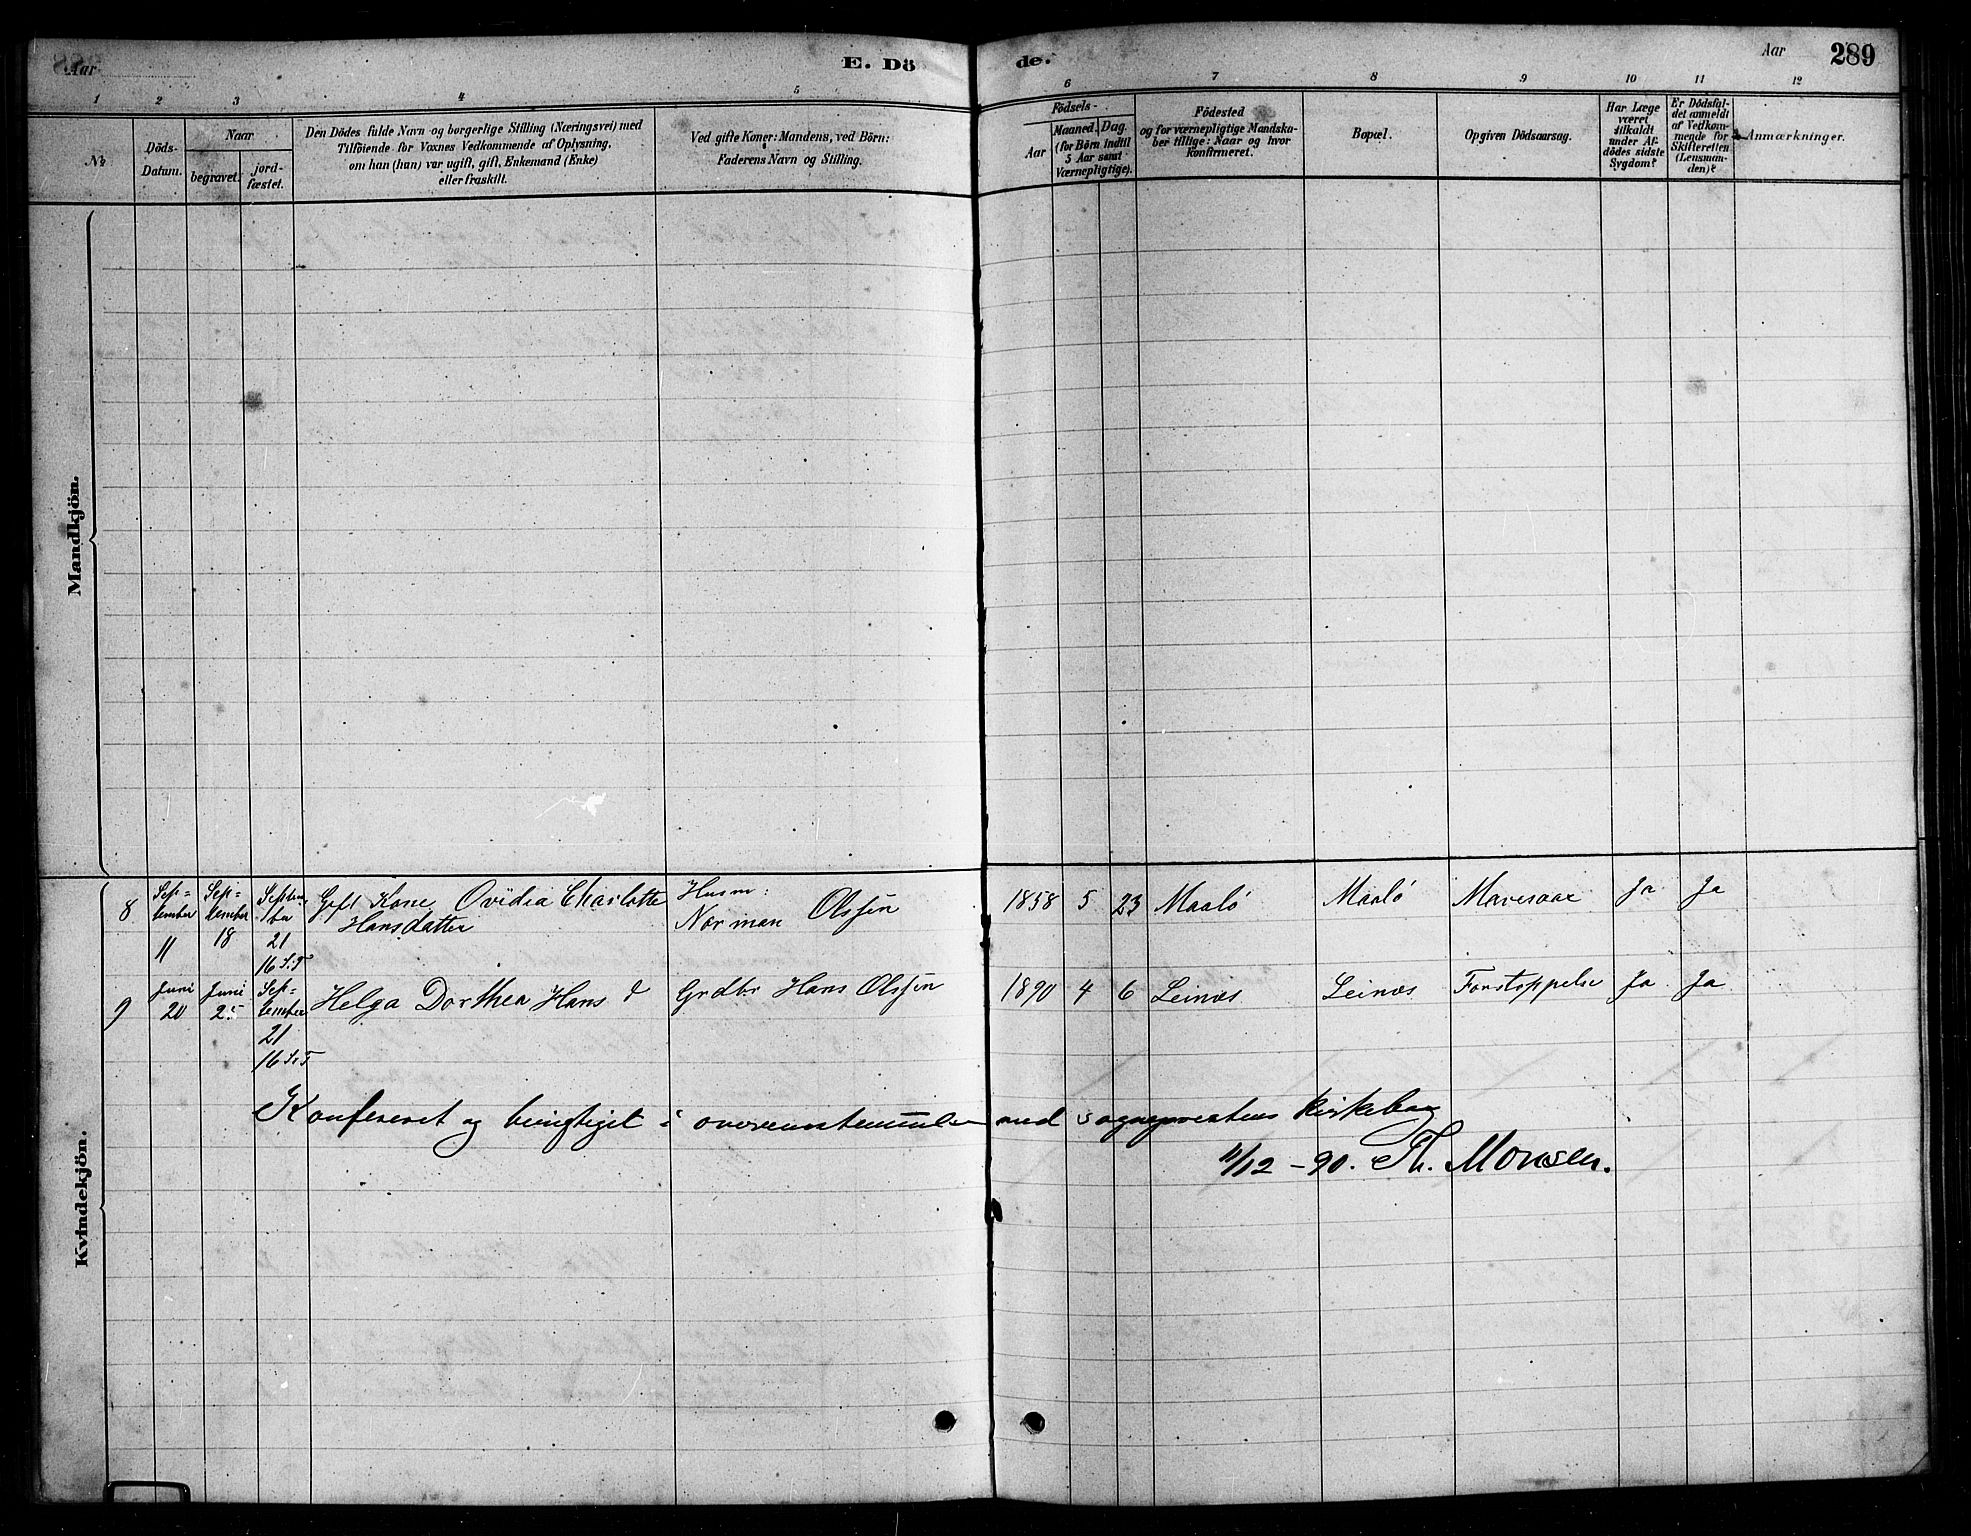 Aar
E. Dö
de.
Aar
289
1 2 3 4 5 6 7 8 9 10 11 12
No
Döds-
Datum.
Naar
begravet.
jord-
fæstet.
Den Dödes fulde Navn og borgerlige Stilling (Næringsvei) med
Tilföiende for Voxnes Vedkommende af Oplysning,
om han (hun) var ugift, gift, Enkemand (Enke)
eller fraskilt.
Ved gifte Koner: Mandens, ved Börn:
Faderens Navn og Stilling.
Födsels-
Aar
Maaned.
Dag.
(for Börn indtil
5 Aar samt
Værnepligtige).
Födested
og for værnepligtige Mandska-
ber tillige: Naar og hvor
Konfirmeret.
Bopæl.
Opgiven Dödsaarsag.
Har Læge
været
tilkaldt
under Af-
dödes sidste
Sygdom?
Er Dödsfal-
det anmeldt
af Vedkom-
mende for
Skifteretten
(Lensman-
den)?
Anmærkninger.
Mandkjön.
Kvindekjön.
8
Sep-
tember
11
Sep-
tember
18
Septem
ber
21
16 S.T
Gift Kone Ovidia Charlotte
Hansdatter
Husm:
Norman Olssen
1858 5 23 Maalö Maalö Mavesaar Ja Ja
9
Juni
20
Juni
25
Sep-
tember
21
16 S.T
Helga Dorthea Hans d
Grdbr Hans Olssen
1890 4 6 Leines Leines Forstoppelse Ja Ja
Konfereret og berigtiget i overensstemmelse med sogneprestens kirkebog
11/12 -90. Th. Monsen.